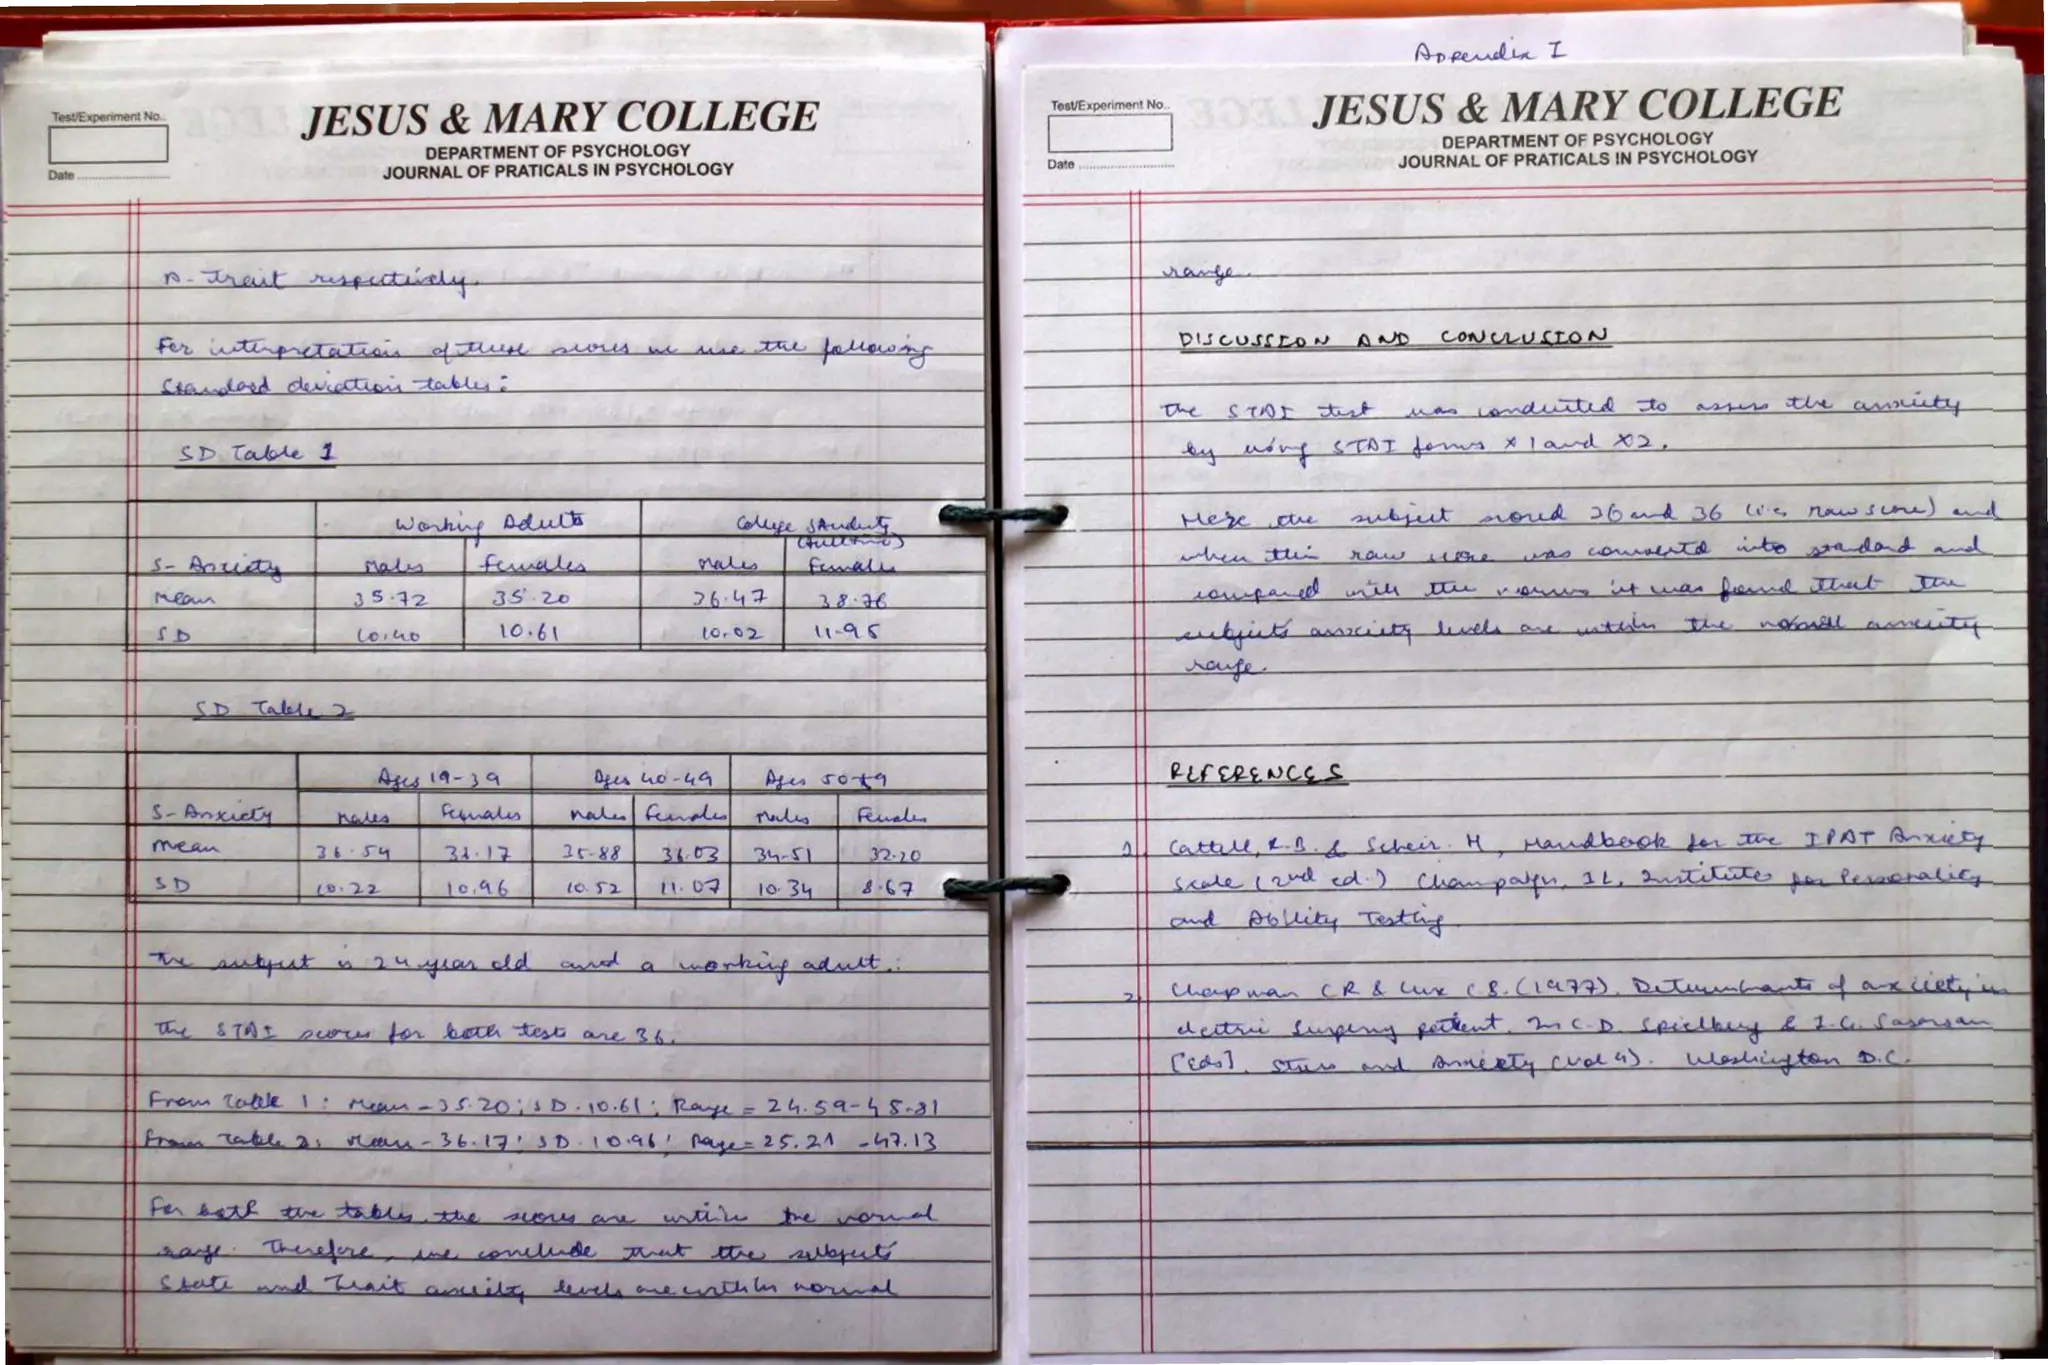 Test/Experiment No..
JESUS & MARY COLLEGE
DEPARTMENT OF PSYCHOLOGY
Date
JOURNAL OF PRATICALS IN PSYCHOLOGY
A-Trait respectively.
For interpretation of these scores we use the following
Standard deviation tables:
SD Table 1
Working Adults College Students
S-Anxiety Males Females Males Females
Mean 35.72 35.20 36.47 38.76
SD 10.40 10.61 10.02 11.95
SD Table 2
Ages 19-39 Ages 40-49 Ages 50-69
S-Anxiety Males Females Males Females Males Females
Mean 36.54 36.17 35.88 36.03 34.51 32.20
SD 10.22 10.96 10.52 11.07 10.34 8.67
The subject is 24 year old and a working adult.
The STAI scores for both tests are 36.
From Table 1: Mean-35.20; SD.10.61; Range = 24.59-45.81
From Table 2: Mean-36.17; SD.10.96; Range=25.21-47.13
For both the tables, the scores are within the normal
range. Therefore, we conclude that the subjects'
State and Trait anxiety levels are within normal
Appendix I
Test/Experiment No..
JESUS & MARY COLLEGE
DEPARTMENT OF PSYCHOLOGY
Date
JOURNAL OF PRATICALS IN PSYCHOLOGY
range.
DISCUSSION AND CONCLUSION
The STAI test was conducted to assess the anxiety
by using STAI forms X1 and X2.
Here the subject scored 36 and 36 (i.e. raw score) and
when this raw score was converted into standard and
compared with the norms it was found that the
subjects' anxiety levels are within the normal anxiety
range.
REFERENCES
1. Cattell, R.B. & Scheir. H, Handbook for the IPAT Anxiety
Scale (2nd ed.) Champaign, IL, Institute for Personality
and Ability Testing
2. Chapman CR & Cox C.S. (1977). Determinants of anxiety in
electric surgery patient. In C.D. Spielberg & I.G. Sasorsan
[Eds]. Stress and Anxiety (Vol 4). Washington D.C.